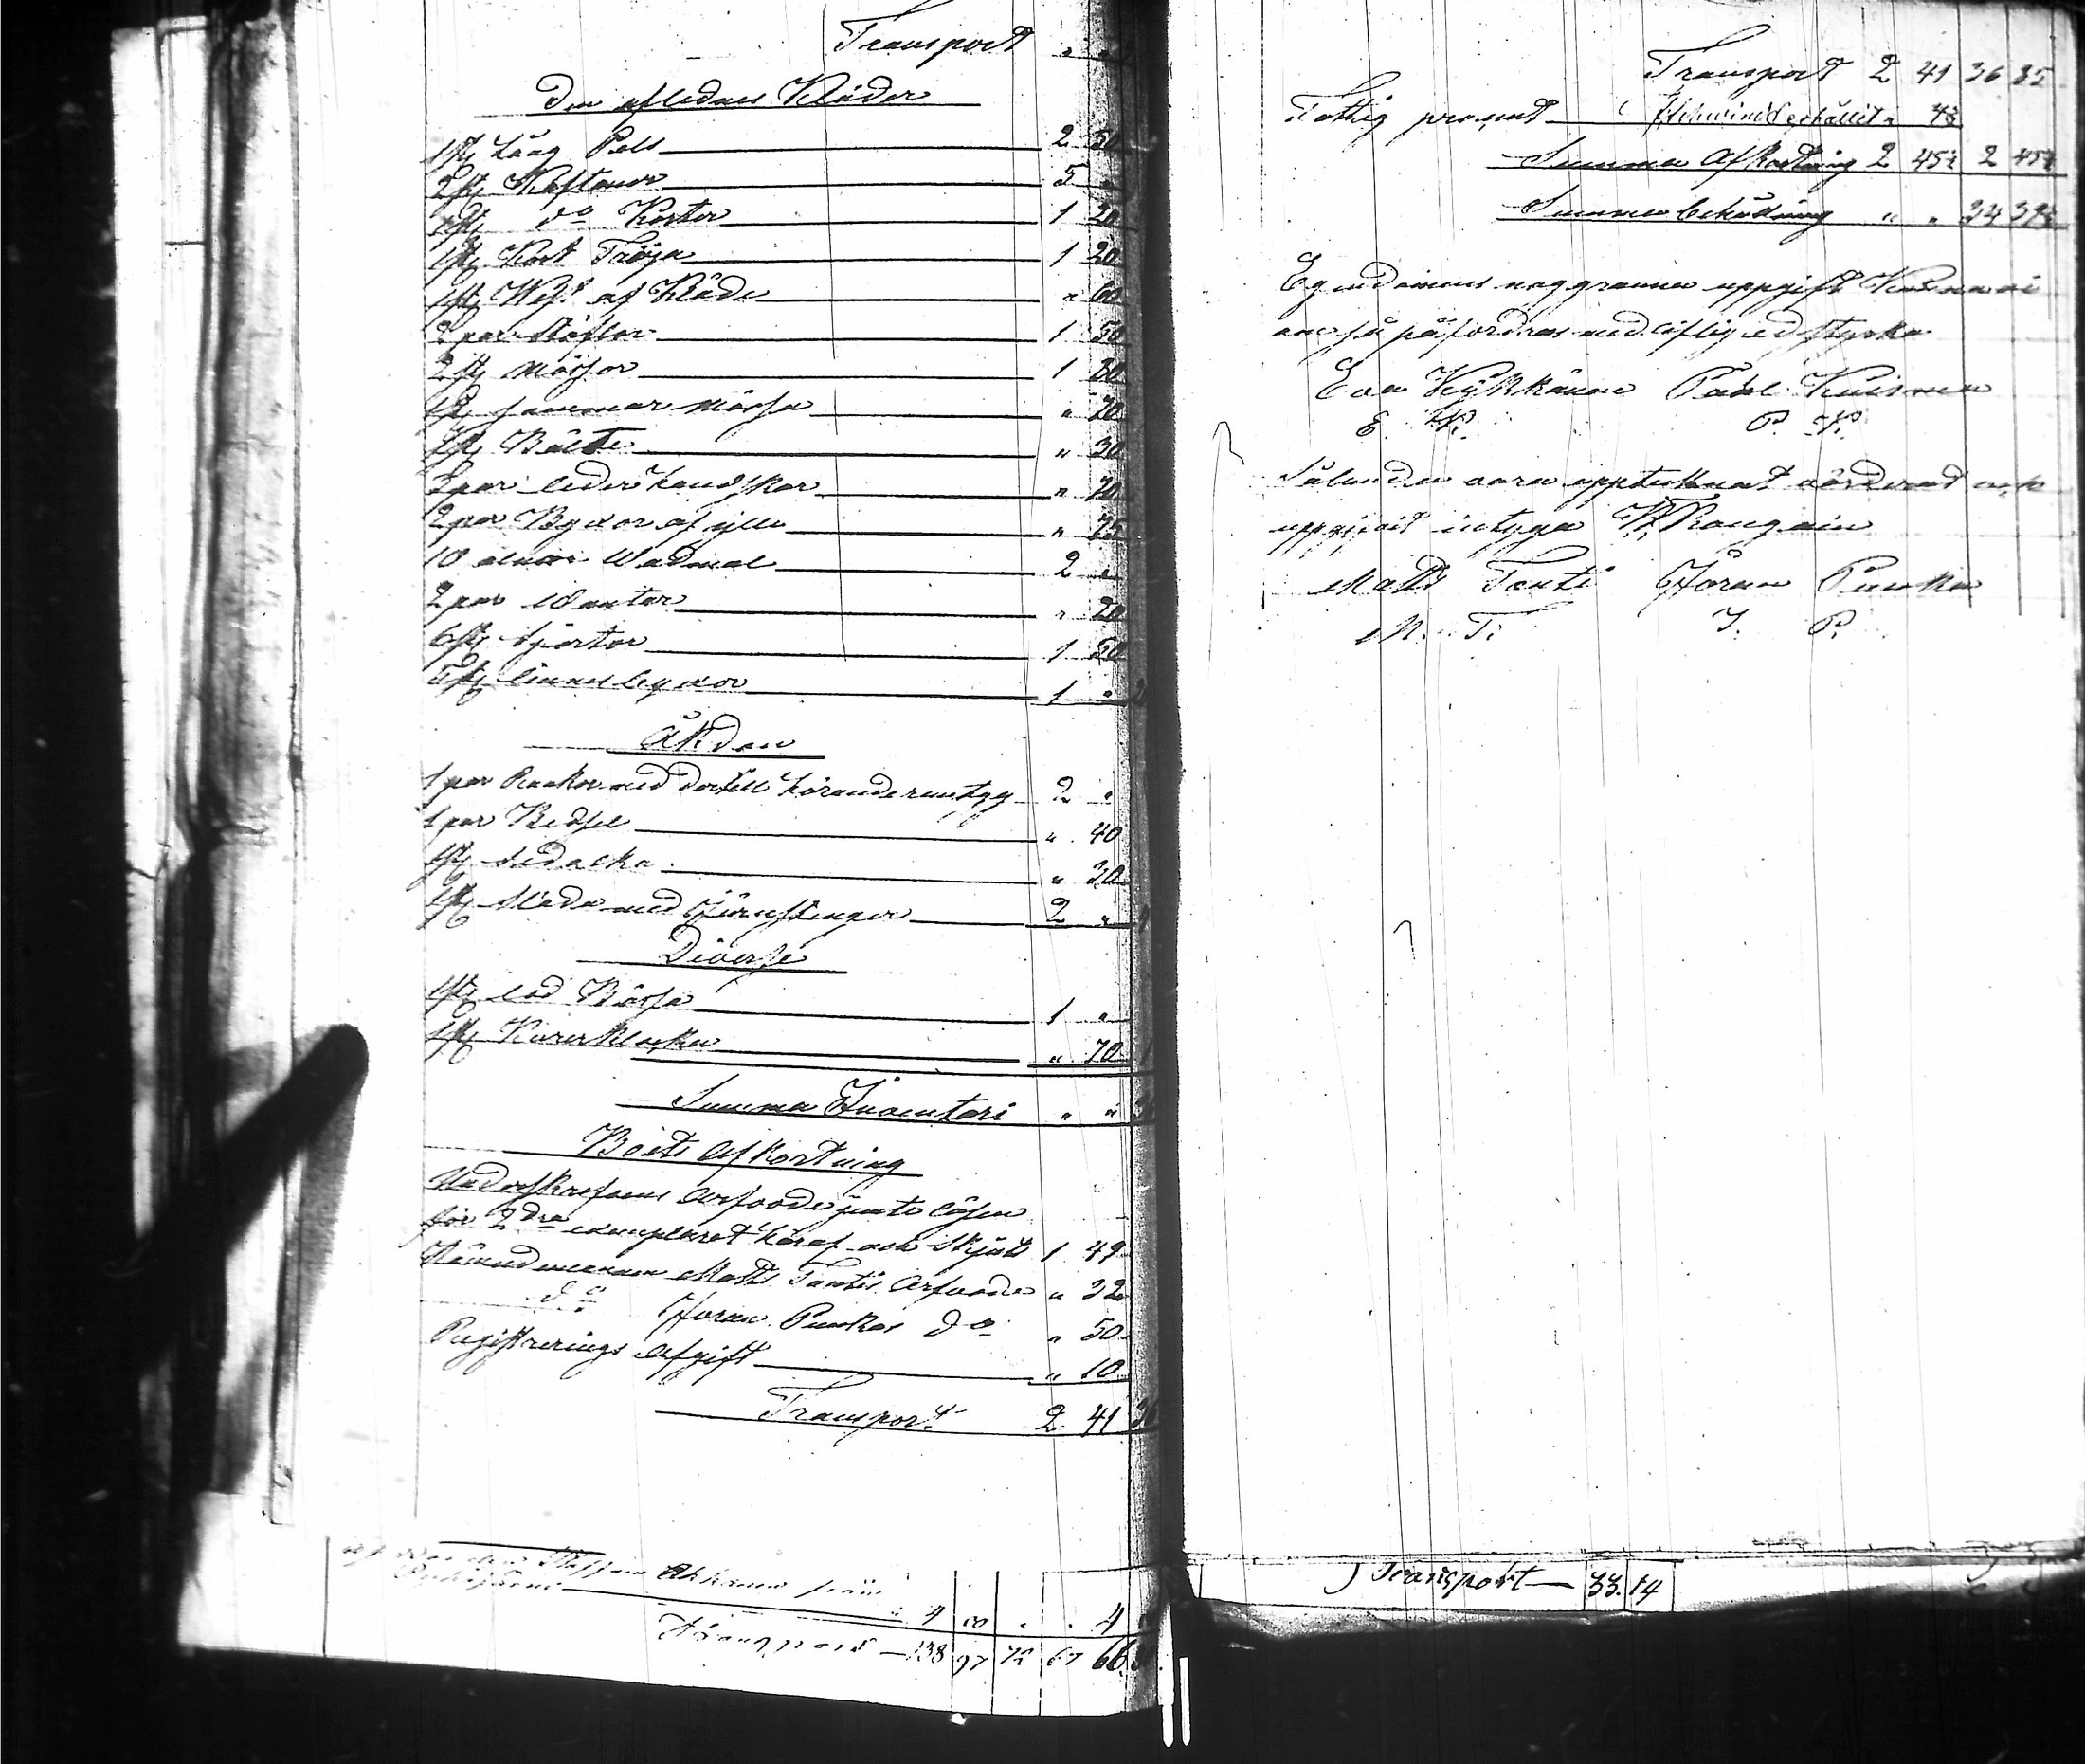 Transport " "
Den aflednes Kläder
1 st Lång Pels 2 50
2 st Kaftaner 5 "
1 st do Korter 1 20
1 st Kort Tröja 1 20
1 st West af Kläde " 60
2 par Stöflor 1 50
2 st Mössor 1 80
1 st sommar mössa " 20
1 st Bälte " 30
3 par läder handskar " 70
2 par Byxor af ylle " 75
10 alnar Wadmal 2 "
2 par Wantar " 20
6 st Sjortor 1 50
5 st linnes byxor 1 "
Åkdon
1 par Rankor med dertill hörande remtyg 2 "
1 par Betsel " 40
1 st Sedolka " 30
1 st Släda med Järnstenger 2 "
Diverse
1 st lod Bössa 1 "
1 st Kurer Klocka " 70
Summa Inventari " "
Boets Afkortning
Underskrefvens Arfvode jemte lösen
för 2dra exemplaret häraf och Skjuts 1 49
Nämndemannen Matts Tantis Arfvode " 32
do Göran Punkas do " 50
Registrerings Afgift " 10
Transport 2 41
Ahkanen från
4 4
Transport 138 97 66
Transport 2 41 36 85
Fattig procent 4½
Summa Afkortning 2 45½ 2 45½
Summa behållning " " 34 39½
Egendomens noggranna uppgift
påfordras med liflig ed styrka
Eva Kykkänen Påhl Kuismin
E. K. P. K.
Sålunda vara upptecknat värderadt och
uppgifvit intyga
Matts Tanti Göran Punka
M. T. J. P.
Transport 33. 14